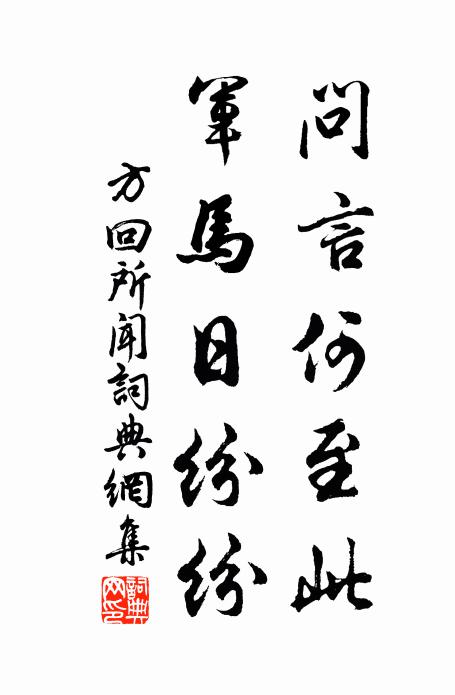 問言何至此
軍馬日紛紛
方回所聞詞典網集
詞典網印